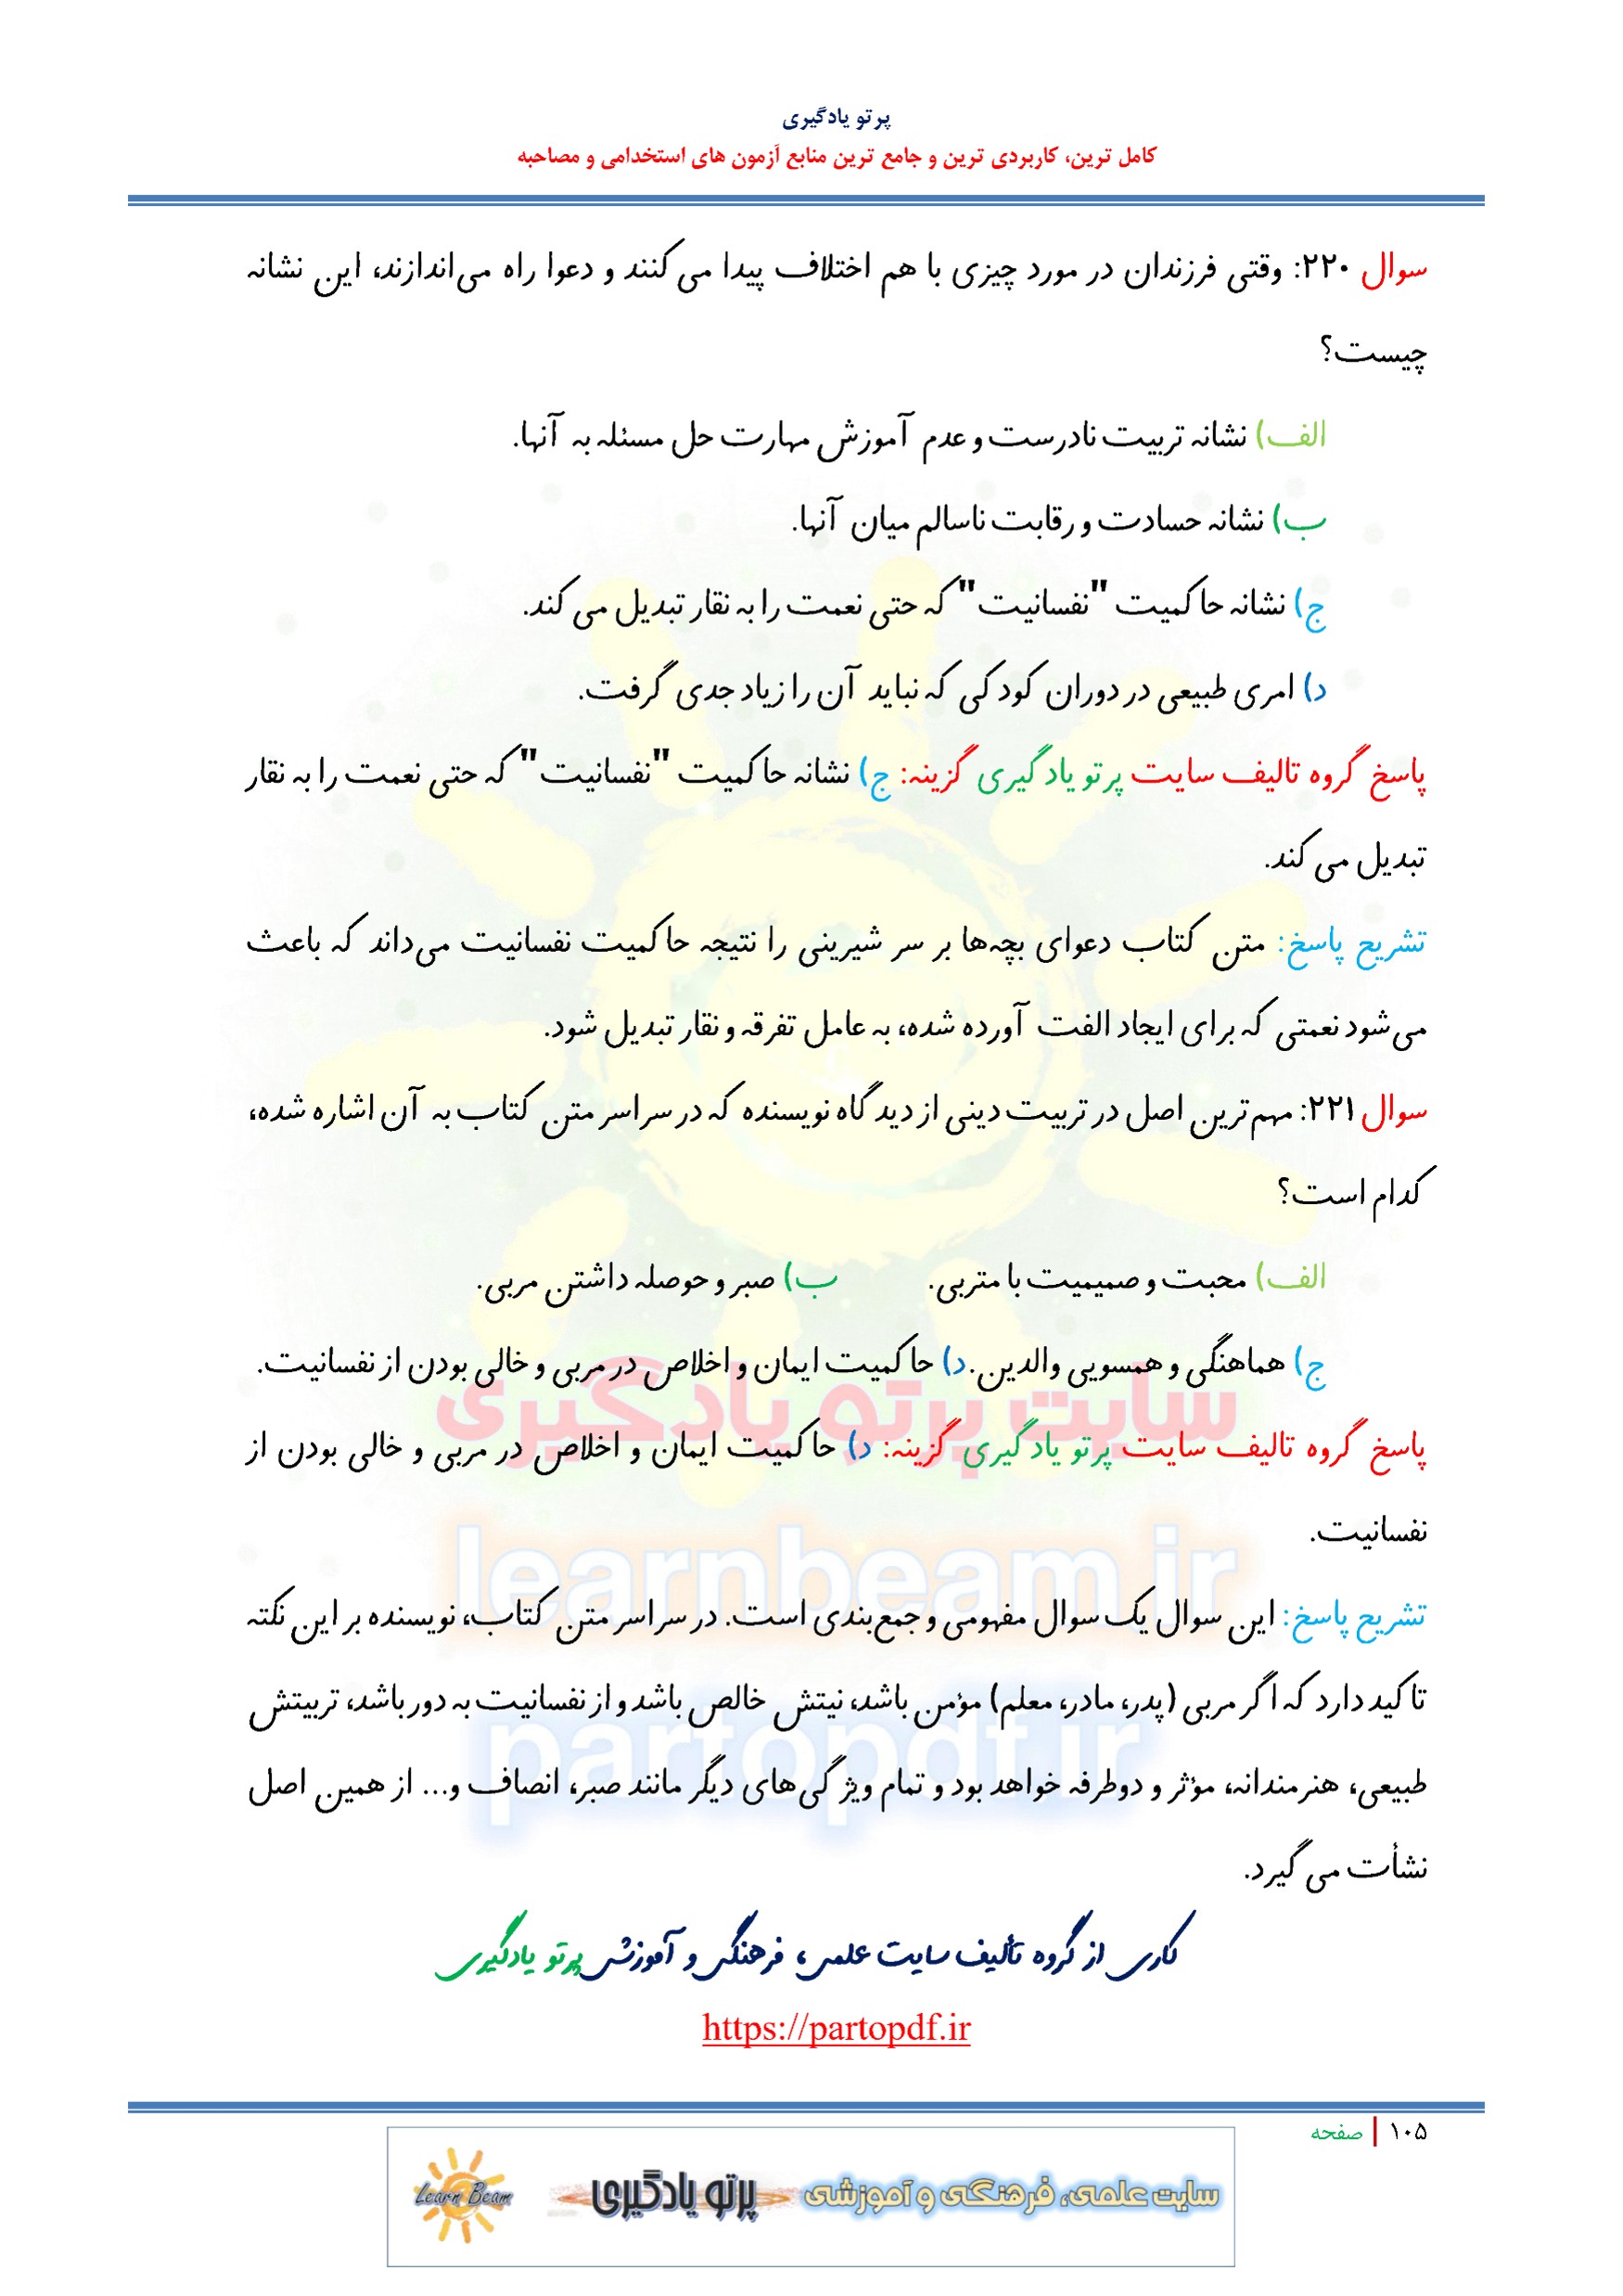 پرتو یادگیری
کامل ترین، کاربردی ترین و جامع ترین منابع آزمون های استخدامی و مصاحبه
سوال ۲۲۰: وقتی فرزندان در مورد چیزی با هم اختلاف پیدا می کنند و دعوا راه می‌اندازند، این نشانه
چیست؟
الف) نشانه تربیت نادرست و عدم آموزش مهارت حل مسئله به آنها.
ب) نشانه حسادت و رقابت ناسالم میان آنها.
ج) نشانه حاکمیت "نفسانیت" که حتی نعمت را به نقار تبدیل می کند.
د) امری طبیعی در دوران کودکی که نباید آن را زیاد جدی گرفت.
پاسخ گروه تالیف سایت پرتو یادگیری گزینه: ج) نشانه حاکمیت "نفسانیت" که حتی نعمت را به نقار
تبدیل می کند.
تشریح پاسخ: متن کتاب دعوای بچه‌ها بر سر شیرینی را نتیجه حاکمیت نفسانیت می‌داند که باعث
می‌شود نعمتی که برای ایجاد الفت آورده شده، به عامل تفرقه و نقار تبدیل شود.
سوال ۲۲۱: مهم‌ترین اصل در تربیت دینی از دیدگاه نویسنده که در سراسر متن کتاب به آن اشاره شده،
کدام است؟
الف) محبت و صمیمیت با متربی. ب) صبر و حوصله داشتن مربی.
ج) هماهنگی و همسویی والدین. د) حاکمیت ایمان و اخلاص در مربی و خالی بودن از نفسانیت.
پاسخ گروه تالیف سایت پرتو یادگیری گزینه: د) حاکمیت ایمان و اخلاص در مربی و خالی بودن از
نفسانیت.
تشریح پاسخ: این سوال یک سوال مفهومی و جمع‌بندی است. در سراسر متن کتاب، نویسنده بر این نکته
تاکید دارد که اگر مربی (پدر، مادر، معلم) مؤمن باشد، نیتش خالص باشد و از نفسانیت به دور باشد، تربیتش
طبیعی، هنرمندانه، مؤثر و دوطرفه خواهد بود و تمام ویژگی‌های دیگر مانند صبر، انصاف و... از همین اصل
نشأت می گیرد.
سایت پرتو یادگیری
learnbeam.ir
partopdf.ir
کاری از گروه تألیف سایت علمی، فرهنگی و آموزشی پرتو یادگیری
https://partopdf.ir
۱۰۵ | صفحه
سایت علمی، فرهنگی و آموزشی پرتو یادگیری Learn Beam